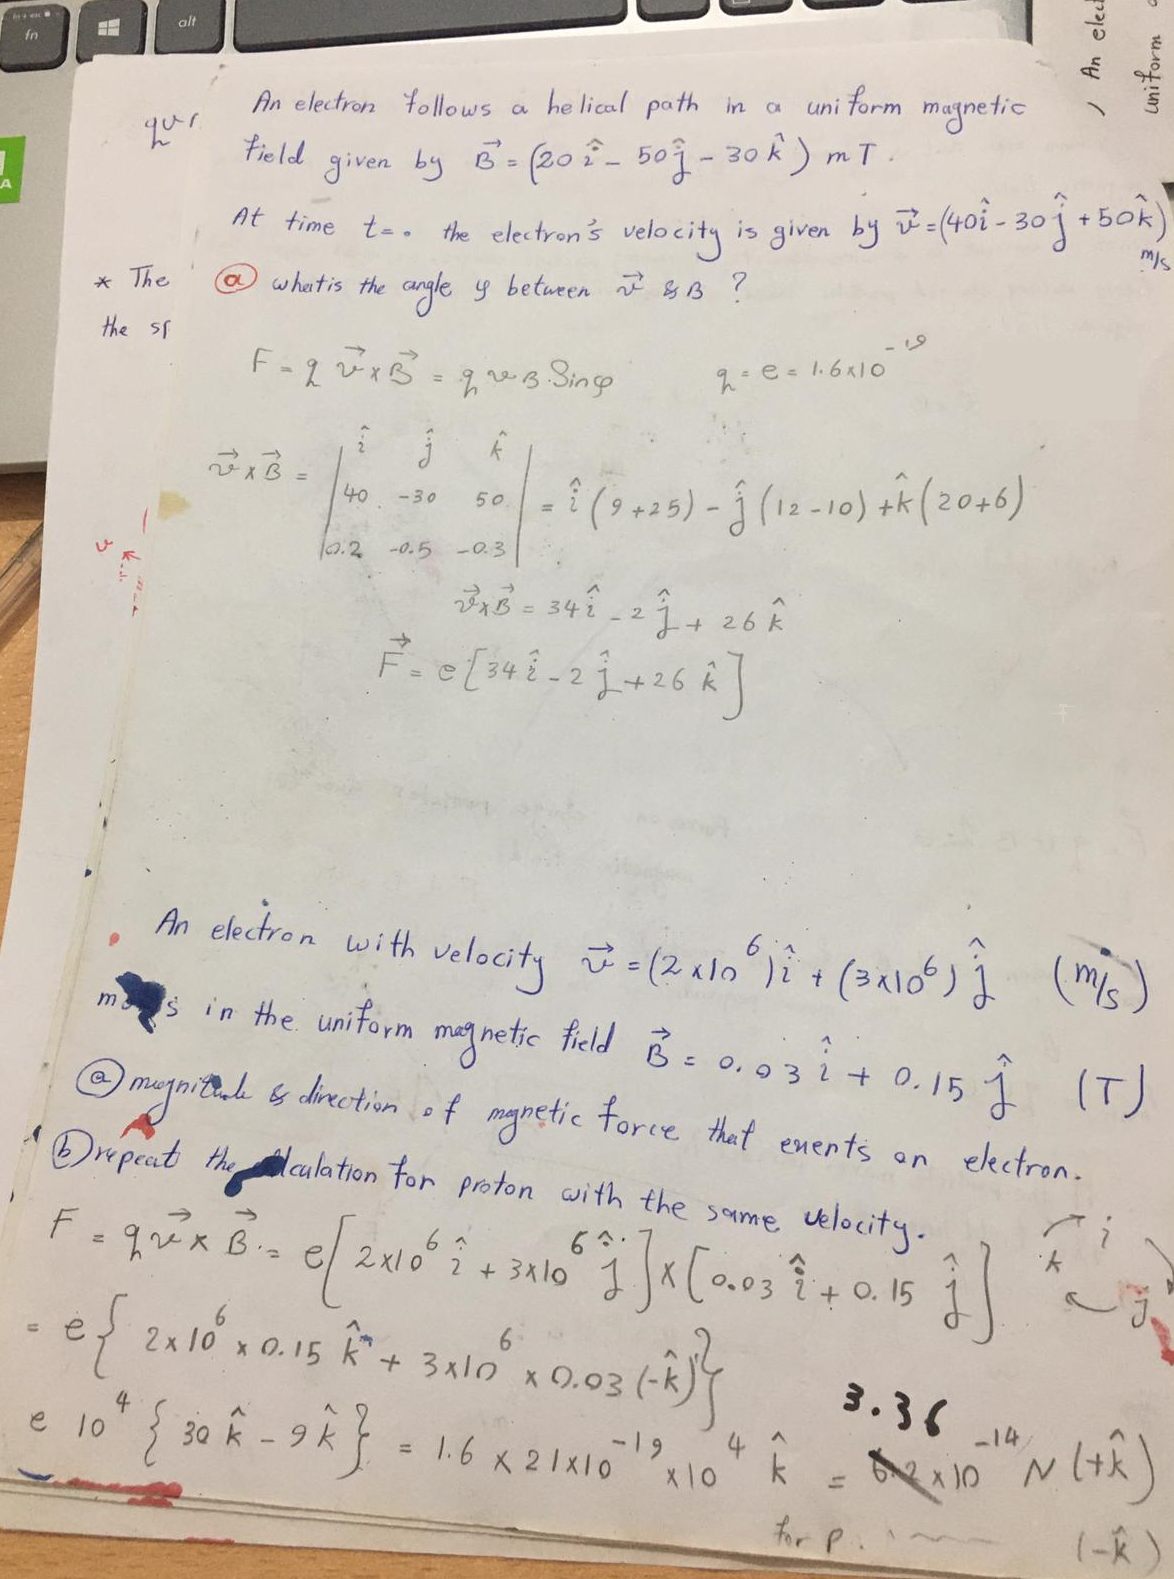 fn
alt
An elect
uniform
An electron follows a helical path in a uniform magnetic
field given by B⃗ = (20 î - 50 ĵ - 30 k̂) mT.
At time t=0 the electron's velocity is given by v⃗ = (40î - 30ĵ + 50k̂) m/s
* The
ⓐ what is the angle φ between v⃗ & B ?
the
F = q v⃗ x B⃗ = q v B Sinφ q = e = 1.6x10⁻¹⁹
v⃗ x B⃗ = | î ĵ k̂
40 -30 50
0.2 -0.5 -0.3 | = î (9+25) - ĵ (12-10) + k̂ (20+6)
v⃗xB⃗ = 34 î - 2 ĵ + 26 k̂
F⃗ = e [34 î - 2 ĵ + 26 k̂]
An electron with velocity v⃗ = (2x10⁶) î + (3x10⁶) ĵ (m/s)
in the uniform magnetic field B⃗ = 0.03 î + 0.15 ĵ (T)
ⓐ magnitude & direction of magnetic force that exents on electron.
ⓑ repeat the calculation for proton with the same velocity.
F = q v⃗ x B⃗ = e [2x10⁶ î + 3x10⁶ ĵ] x [0.03 î + 0.15 ĵ]
i
k
j
= e { 2x10⁶ x 0.15 k̂ + 3x10⁶ x 0.03 (-k̂) }
e 10⁴ { 30 k̂ - 9 k̂ } = 1.6 x 21x10⁻¹⁹ x10⁴ k̂ = 3.36 x10⁻¹⁴ N (+k̂)
for p. (-k̂)